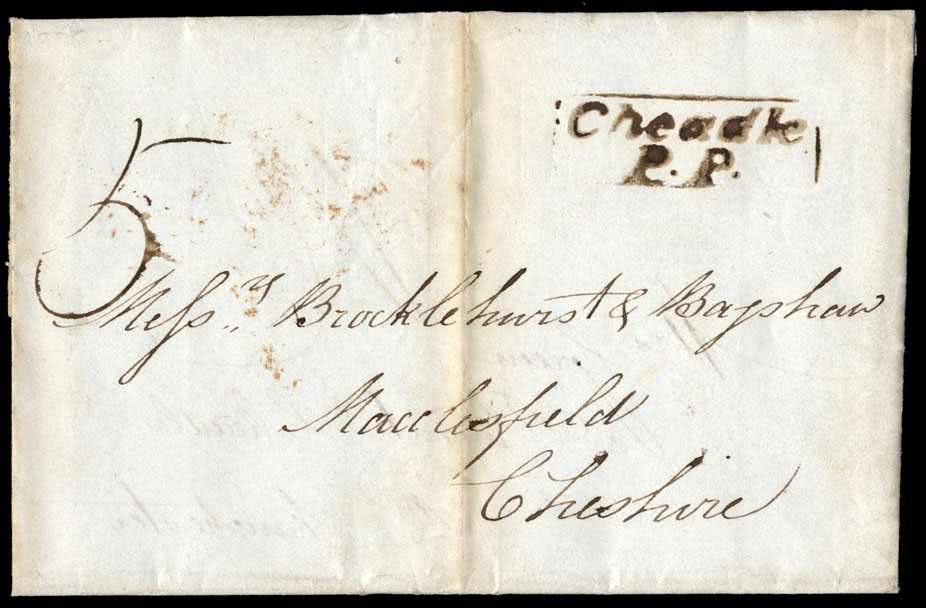 Cheadle
P. P.
5
Messrs Brocklehurst & Bagshaw
Macclesfield
Cheshire